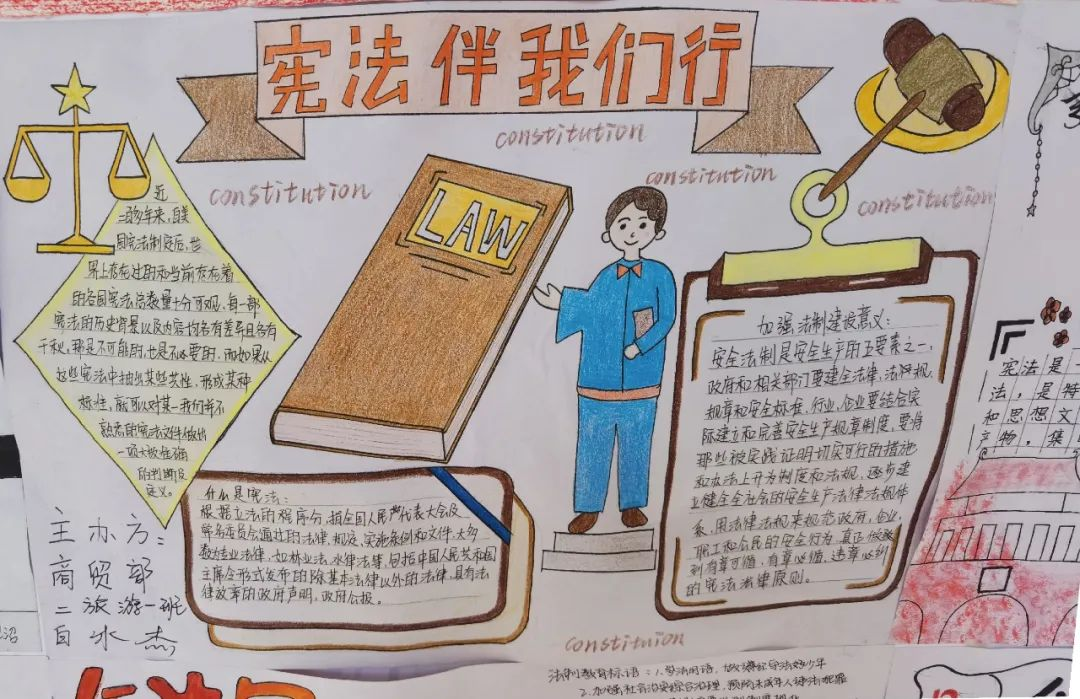 宪法伴我们行
constitution
constitution
constitution
constitution
LAW
近
二百多年来，自美
国宪法制定后，世
界上存在过的和当前存在着
的各国宪法总数量十分可观，每一部
宪法的历史背景以及内容均各有差异且各有
千秋，那是不可能的，也是不必要的，而如果从
这些宪法中抽出某些共性，形成某种
标准，就可以对某一我们并不
熟悉的宪法文件做出
一项大概准确
的判断及
定义。
加强法制建设意义：
安全法制是安全生产的五要素之一，
政府和相关部门要建全法律、法规、规
规章和安全标准，行业，企业要结合实
际建立和完善安全生产规章制度，要将
那些被实践证明切实可行的措施
和办法上升为制度和法规，逐步建
业健全全社会的安全生产法律法规体
系，用法律法规来规范政府，企业，
职工和公民的安全行为，真正做
到有章可循，有章必循，违章必纠
的宪法法律原则。
什么是宪法：
根据立法的程序分，指全国人民代表大会及
常务委员会通过的法律、规定、实施条例和文件，大多
数为专业法律，如林业法、水律法等，包括中国人民共和国
主席令形式发布的除基本法律以外的法律，具有法
律效率的政府声明，政府公报。
主办方：
商贸部
二旅游一班
白水杰
constituion
法制教育标语：1.学法用法，做遵纪守法好少年
2.加强社会治安综合治理，预防未成年人违法犯罪
宪法是
法，是特
和思想文
产物，集